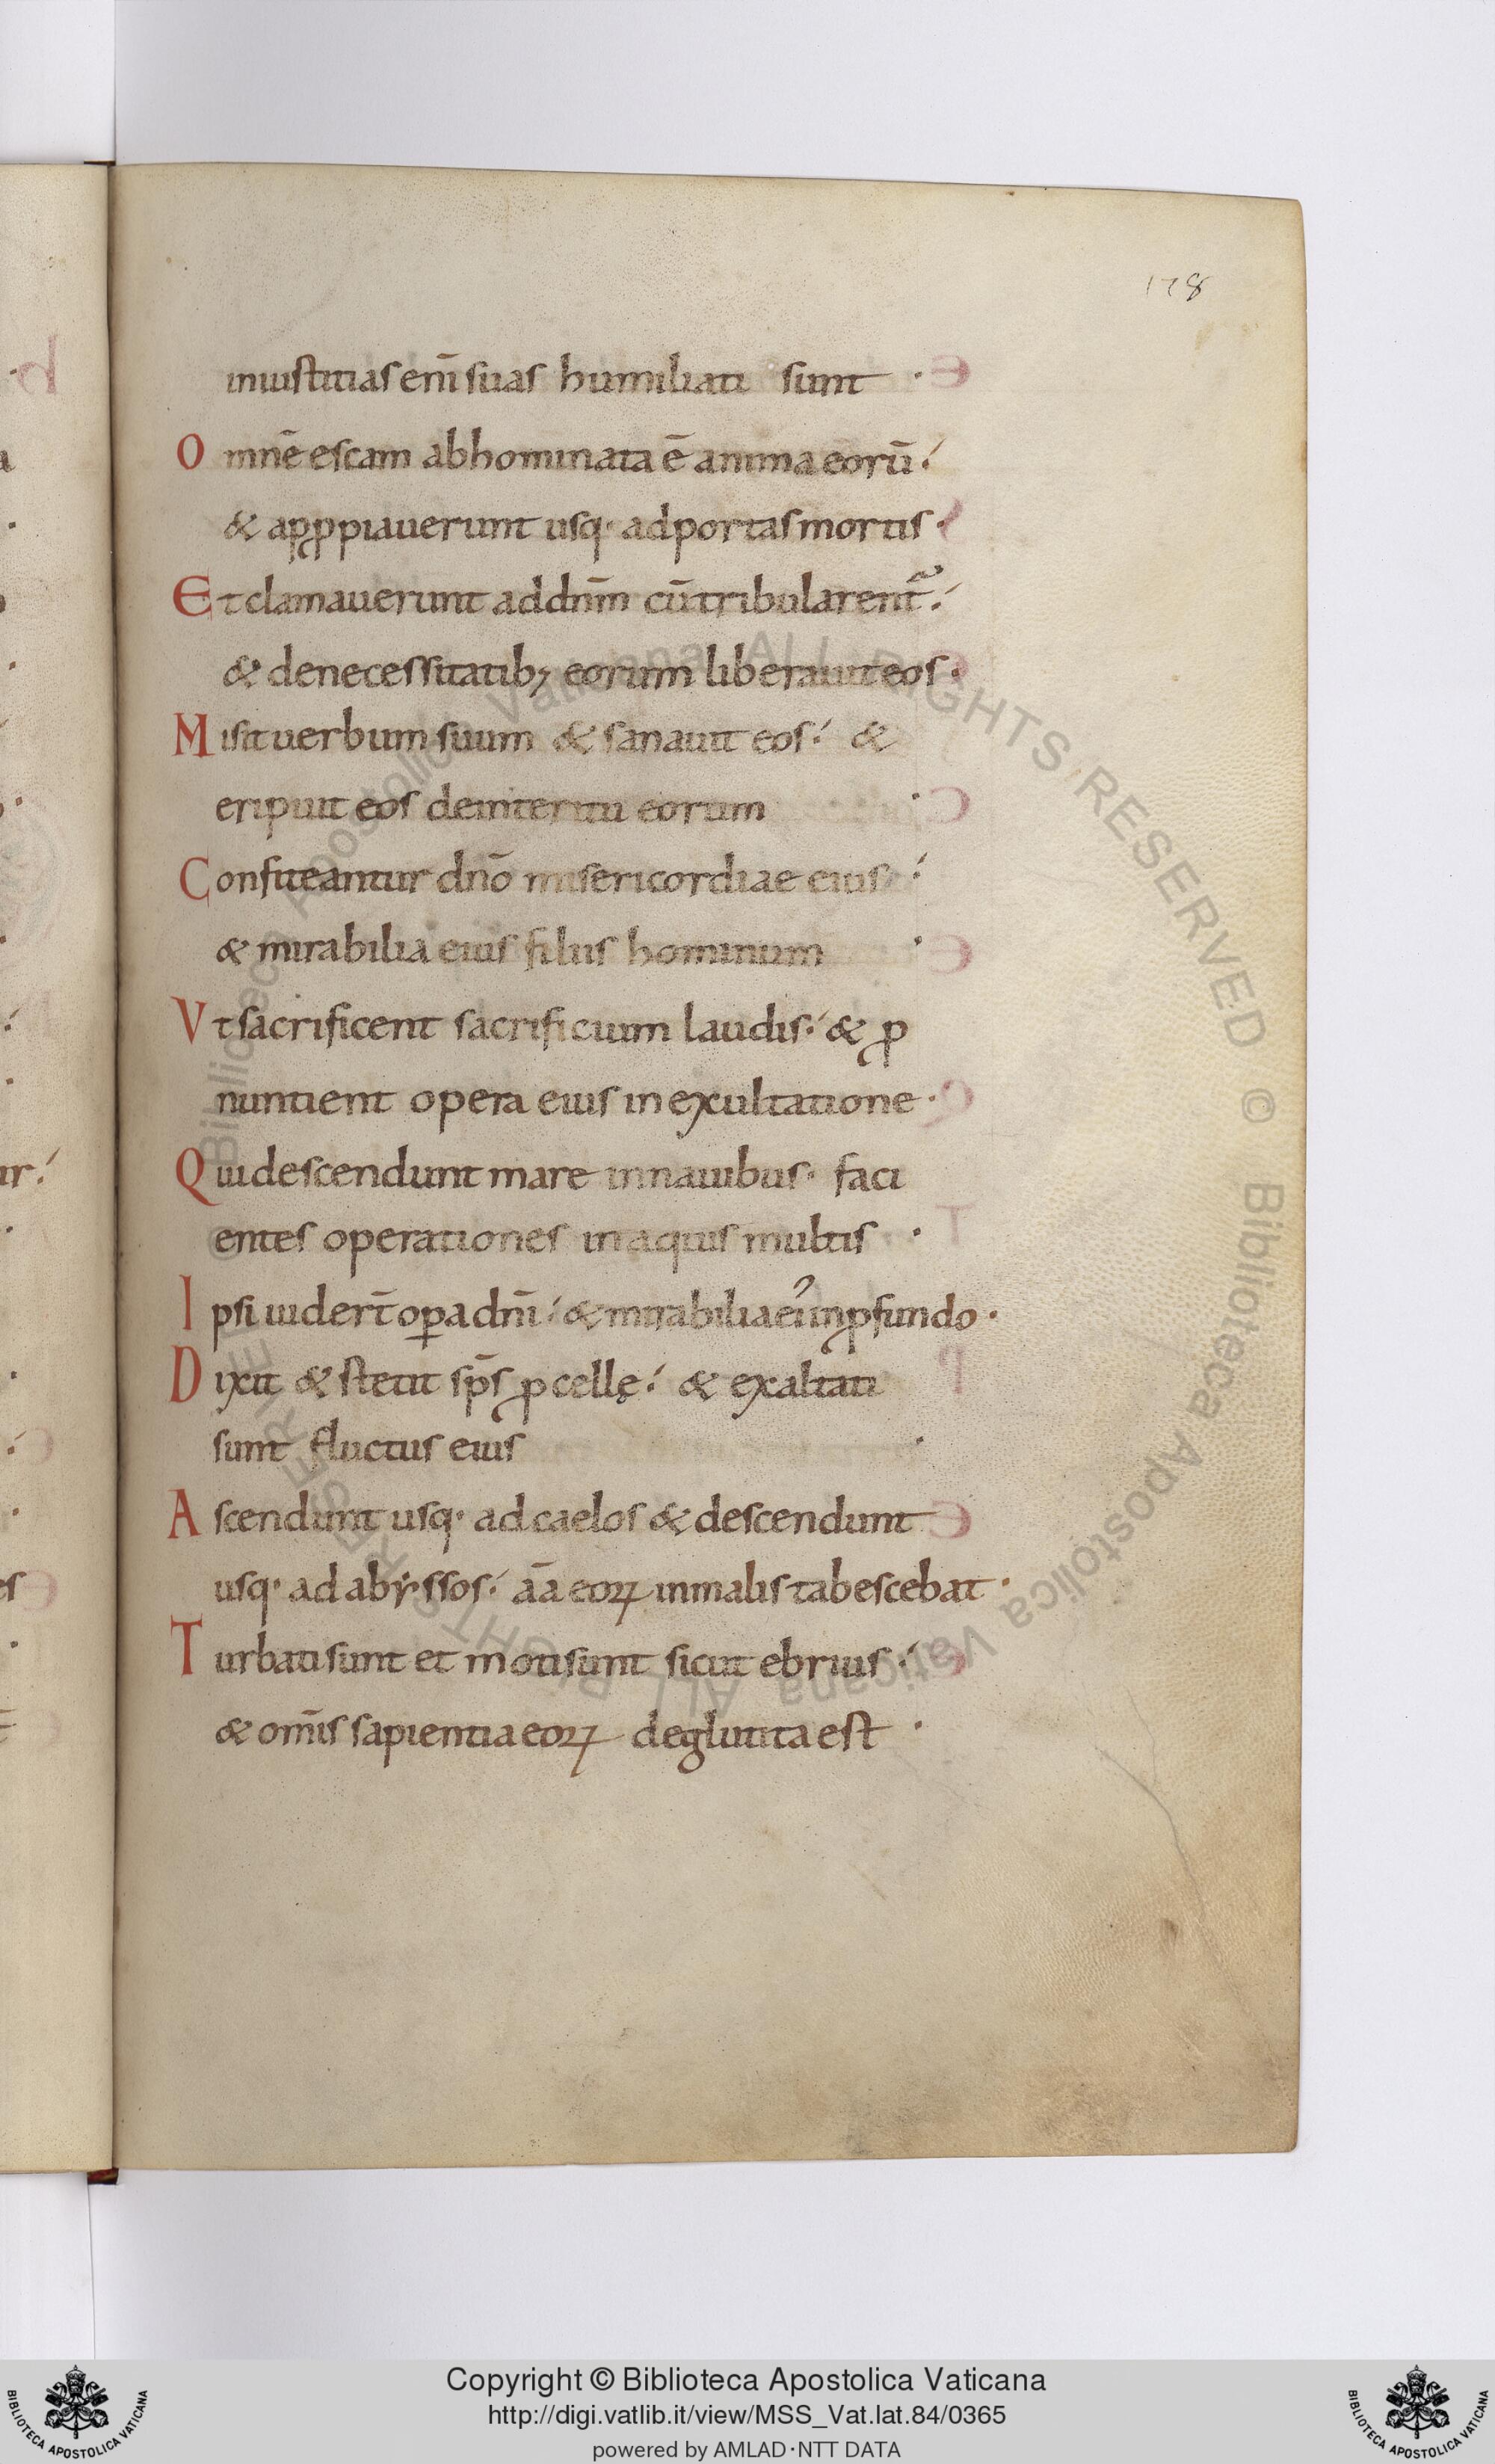 178
iniustitias eni̅ suas humiliati sunt ·
Omne̅ escam abhominata e̅ anima eoru̅ ·́
& apꝓpiauerunt usq· ad portas mortis ·
Et clamauerunt ad dn̅m cu̅ tribularent᷑ ·́
& denecessitatib; eorum liberauit eos ·
Misit uerbum suum & sanauit eos ·́ &
eripuit eos deinteritu eorum ·
Confiteantur dn̅o misericordiae eius ·́
& mirabilia eius filiis hominum ·
Vt sacrificent sacrificium laudis ·́ & ꝓ
nuntient opera eius in exultatione ·
Qui descendunt mare in nauibus · faci
entes operationes in aquis multis ·
Ipsi uidert̅ oꝑa dn̅i ·́ & mirabilia ei᾿ inꝓfundo ·
Dixit & stetit sp̅s ꝓcellę ·́ & exaltati
sunt fluctus eius ·
Ascendunt usq· ad caelos & descendunt
usq· ad abẏssos ·́ a̅a eoꝝ in malis tabescebat ·
Turbati sunt et moti sunt sicut ebrius ·́
& om̅is sapientia eoꝝ deglutita est ·
© Biblioteca Apostolica Vaticana ALL RIGHTS RESERVED © Biblioteca Apostolica Vaticana ALL RIGHTS RESERVED
BIBLIOTECA APOSTOLICA VATICANA
Copyright © Biblioteca Apostolica Vaticana
http://digi.vatlib.it/view/MSS_Vat.lat.84/0365
powered by AMLAD·NTT DATA
BIBLIOTECA APOSTOLICA VATICANA